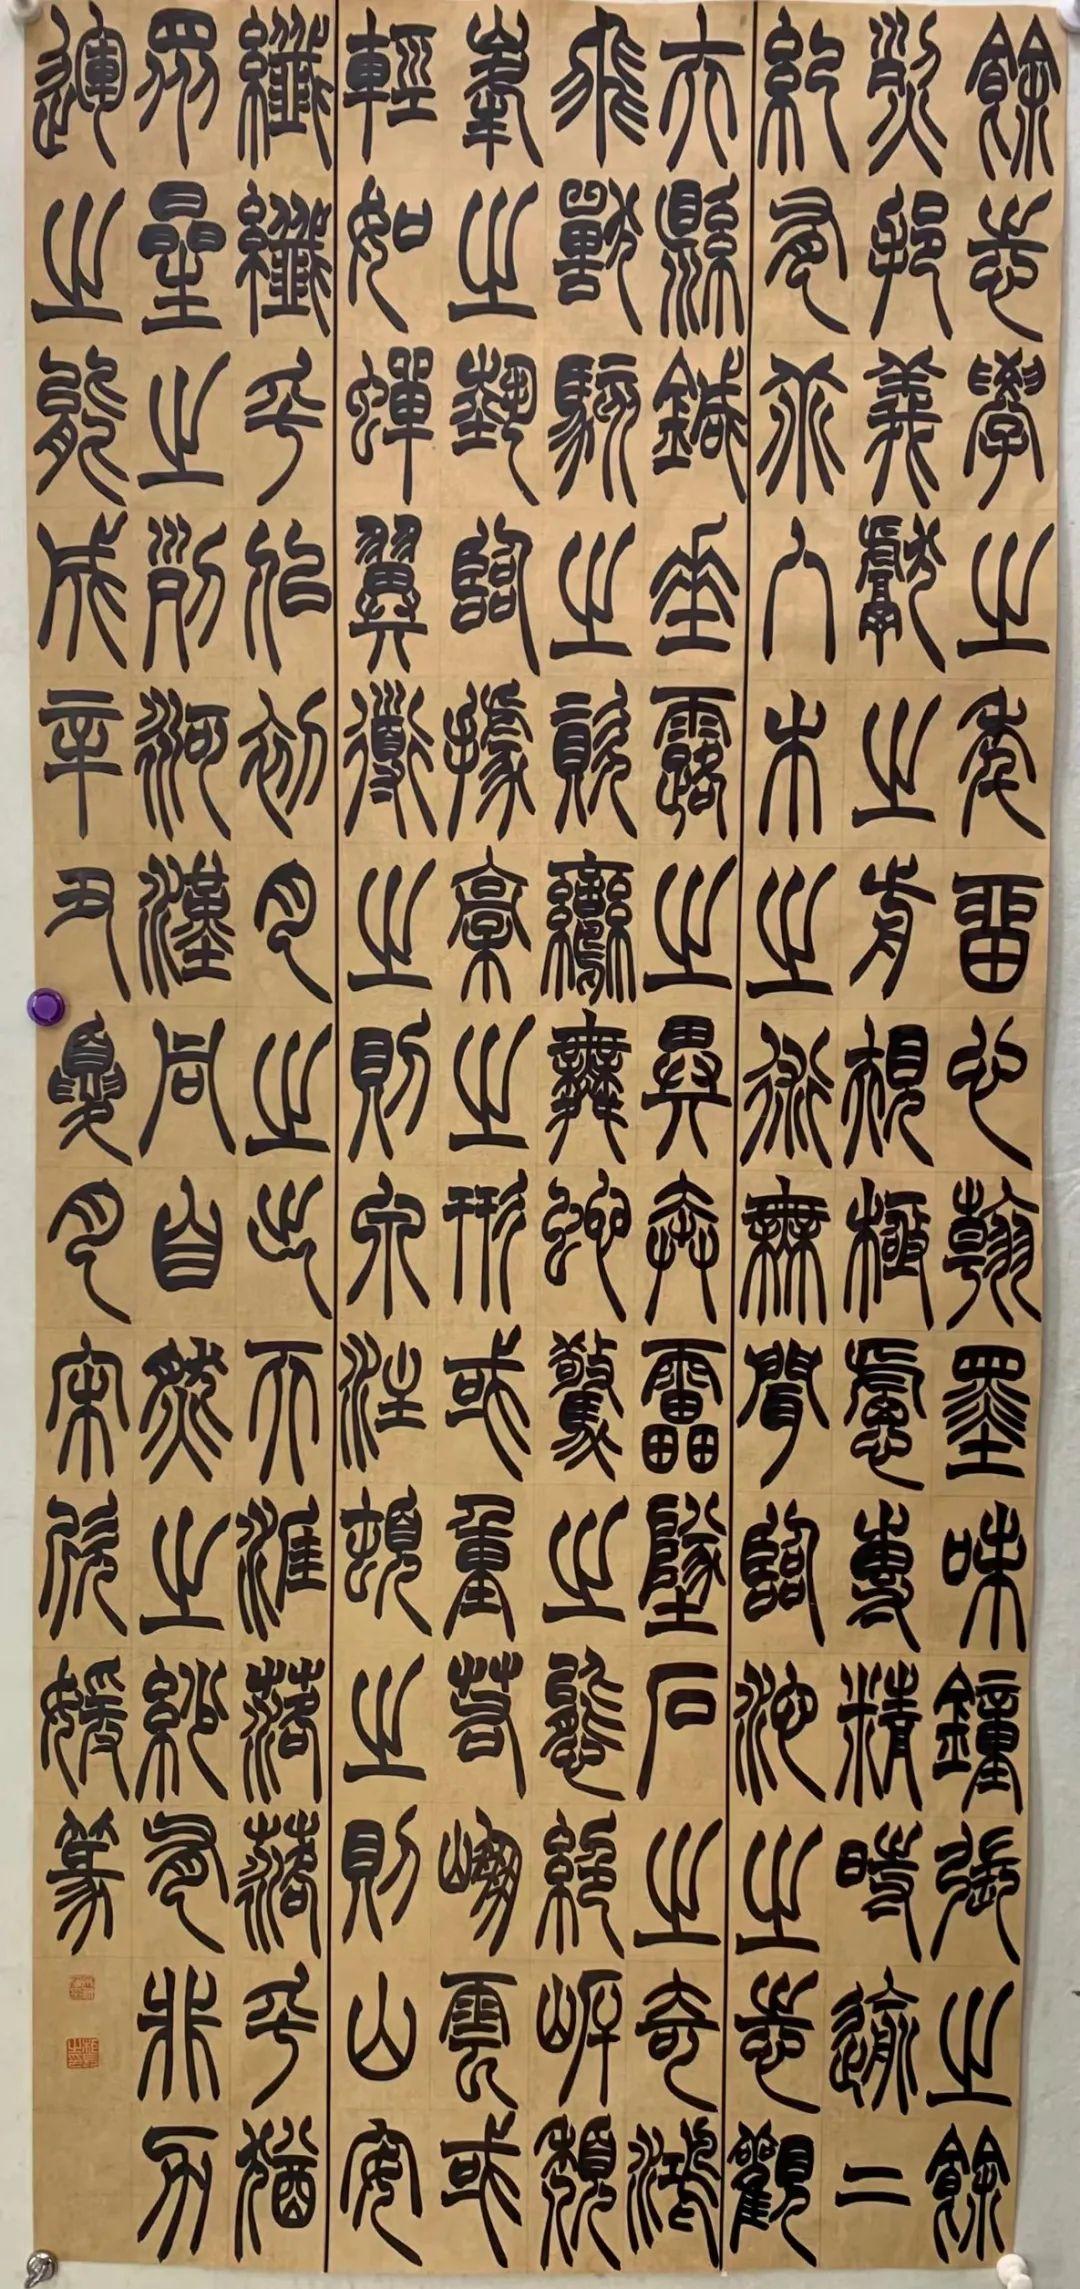 餘志學之年留心翰墨味鐘張之餘
烈挹義獻之前規極慮專精時逾二
紀有乖入木之術無聞臨池之志觀
夫縣鍼垂露之異奔雷墜石之奇鴻
飛獸駭之資鸞舞蛇驚之態絕岸頹
峯之埶臨據槀之形或重若崩雲或
輕如蟬翼導之則泉注頓之則山安
纖纖乎似初月之出天涯落落乎猶
眾星之列河漢同自然之妙有非力
運之能成辛丑夏月宋欣媛篆